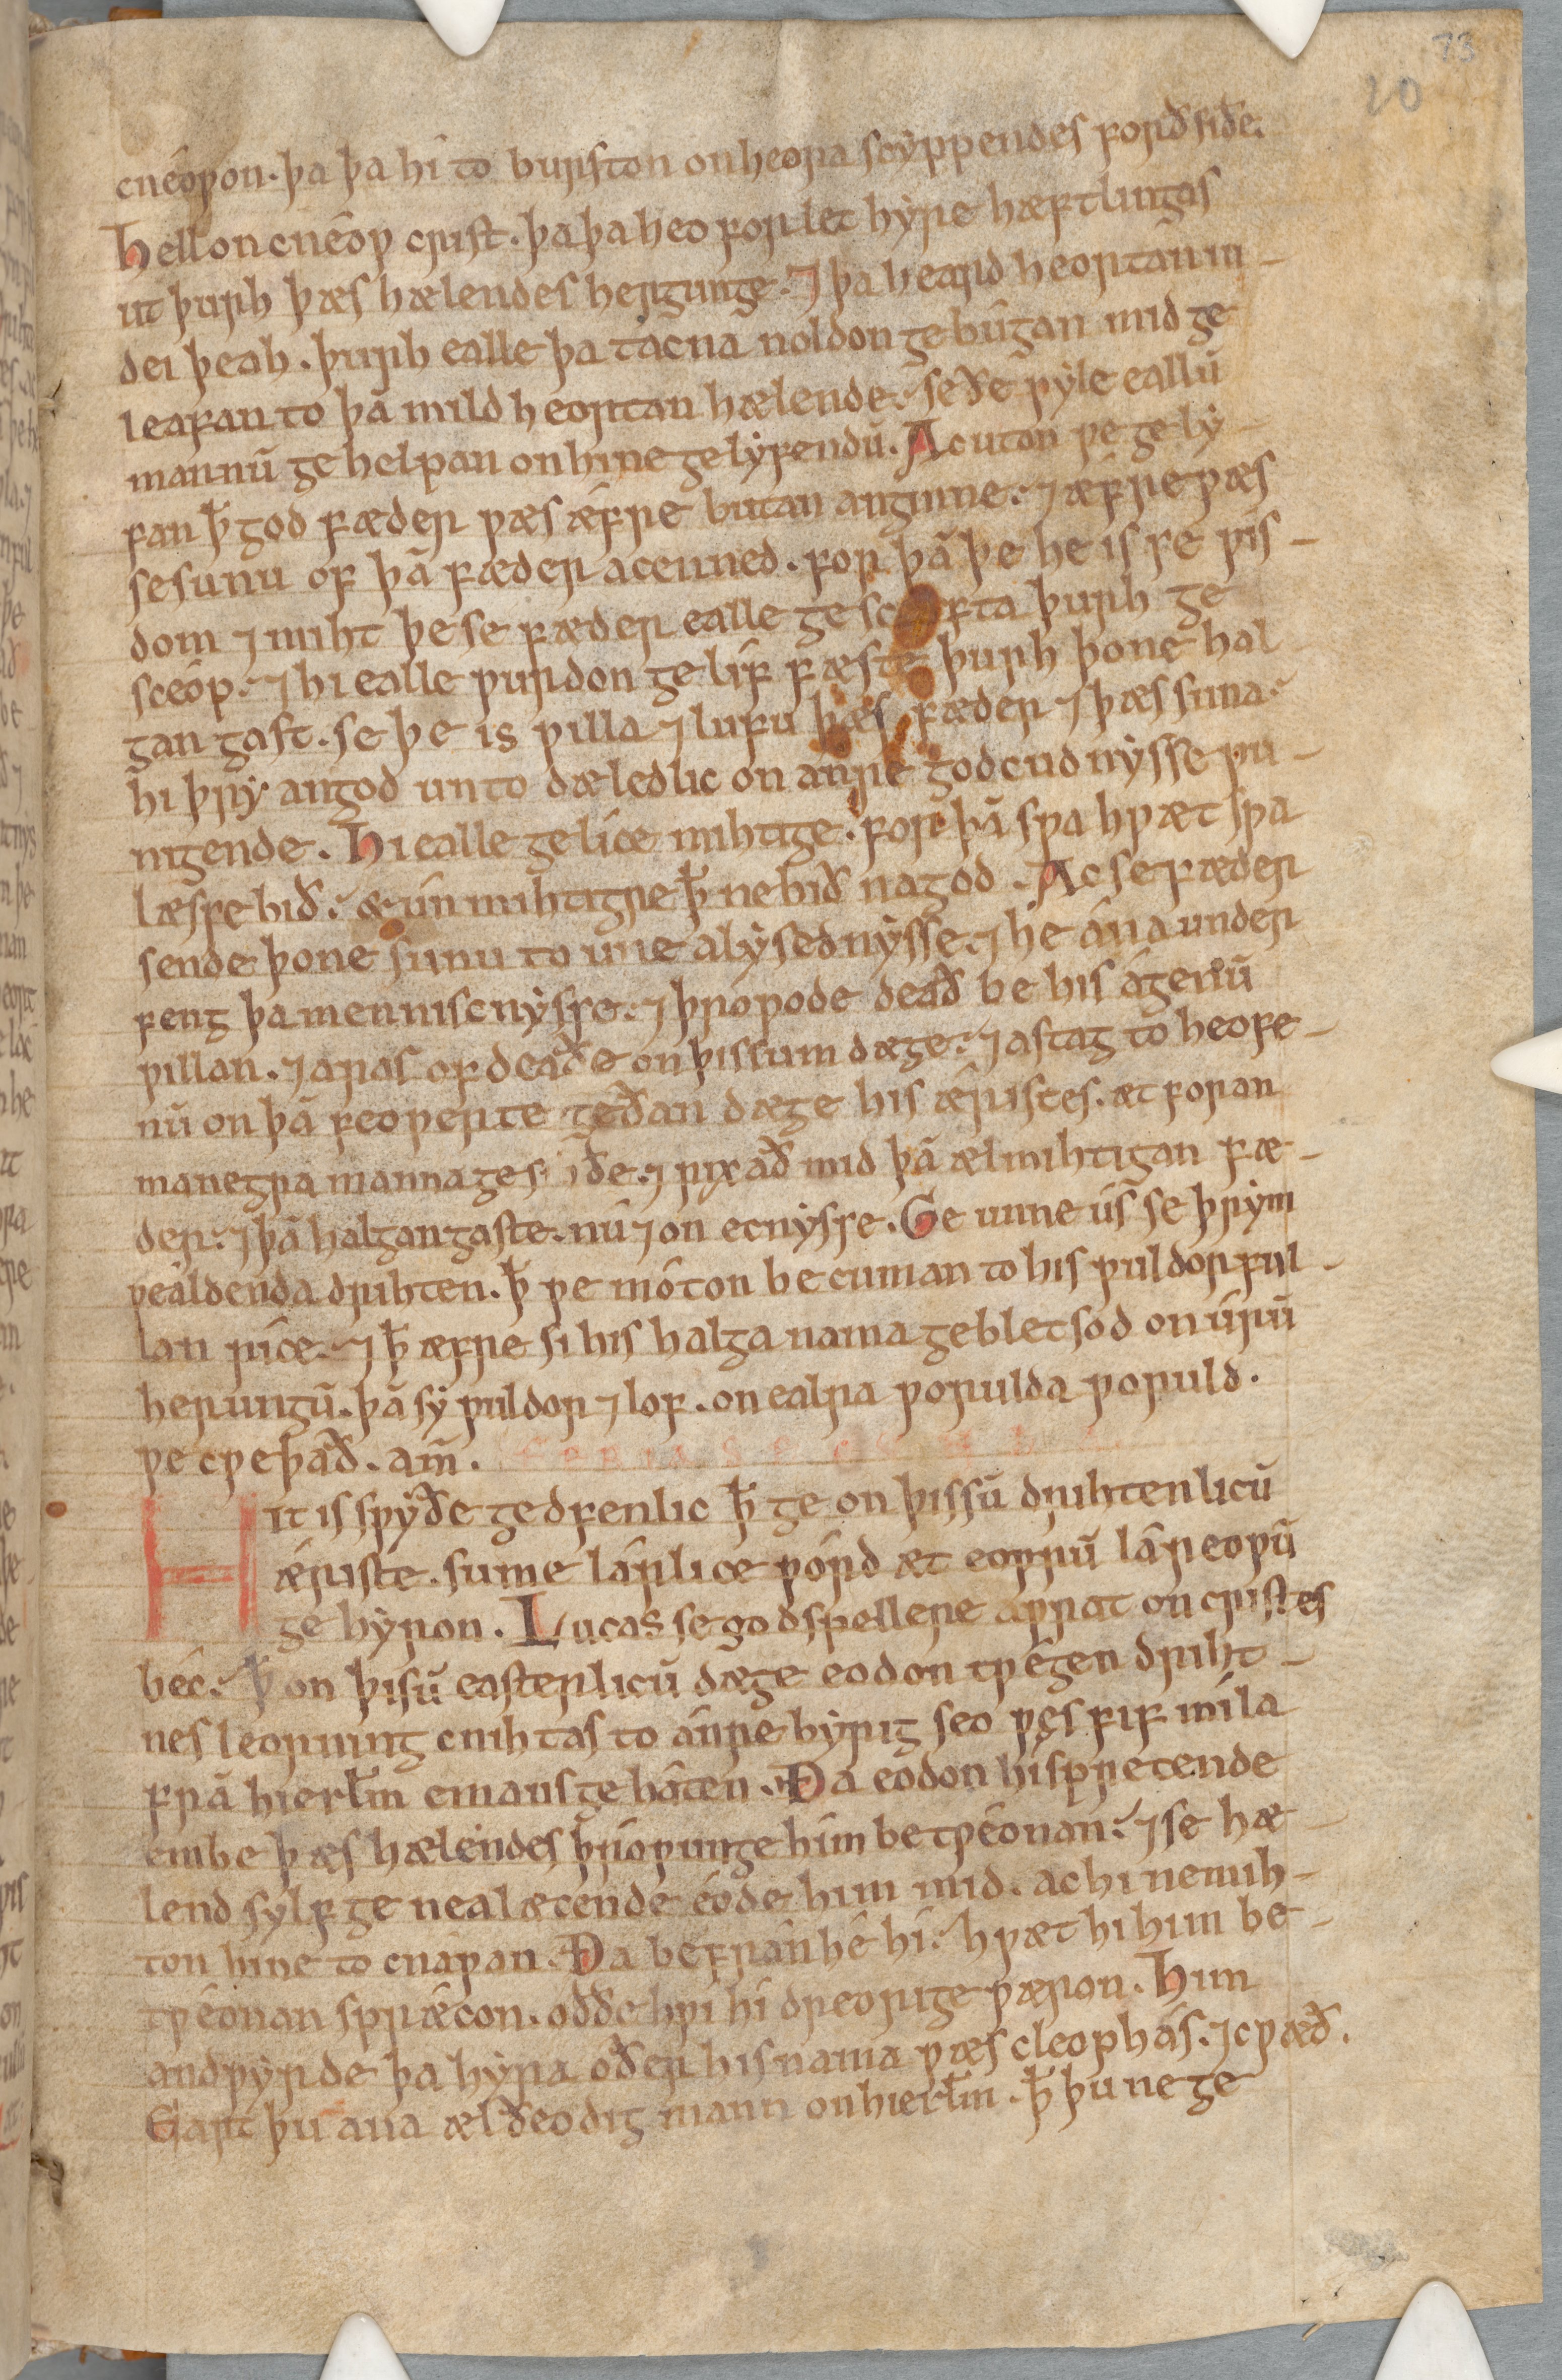 73
20
cnéoƿon. þa þa hí to burston on heora scyppendes forðsiðe.
Hell oncnéoƿ crist. þa þa heo forlet hyre hæftlingas
ut þurh þæs hælendes hergunge. ⁊ þa heard heortan iu
dei þeah. þurh ealle þa tacna noldon gebúgan mid ge
leafan to þā mildheortan hælende. seðe ƿyle eallū
mannū gehelpan on hine gelyfendū. Ac uton ƿe gely
fan ꝥ god fæder ƿæs ǽfre butan anginne. ⁊ æfre ƿæs
se sunu of þā fæder acenned. for þā þe he is se ƿís
dom ⁊ miht þe se fæder ealle gesc fta þurh ge
scéop. ⁊ hi ealle ƿurdon gelíffæste þurh þone hal
gan gast. se þe is ƿilla ⁊ lufu þæs fæder ⁊ þæs suna.
hi þry an god untodæledlic on ánre godcundnysse ƿu
nigende. Hi ealle gelíce mihtige. for þā sƿa hƿæt sƿa
læsse bið. & únmihtigre ꝥ ne bið na god. Ac se fæder
sende þone sunu to ure alysednysse. ⁊ he ána under
feng þa menniscnysse. ⁊ þróƿode deað be his ágenū
ƿillan. ⁊ aras of deaðe on þissum dæge. ⁊ astag to heofe
nū on þā feoƿerteogeðan dæge his ǽristes. ætforan
manegra manna gesihðe. ⁊ rixað mid þā ælmihtigan fæ
der. ⁊ þā halgan gaste. nú ⁊ on ecnysse. Geunne ús se þrym
ƿealdenda drihten. ꝥ ƿe móton becuman to his ƿuldorful
lan ríce. ⁊ ꝥ æfre si his halga nama gebletsod on úrū
herungū. þā sy ƿuldor ⁊ lof. on ealra ƿorulda ƿoruld.
ƿe cƿeþað. am̄.
Hit is sƿyðe gedfenlic ꝥ ge on þissū drihtenlicū
ǽriste. sume lárlice ƿórd æt eoƿrū láreoƿū
gehyron. Lucas se godspellere aƿrat on cristes
béc. ꝥ on þisū easterlicū dæge eodon tƿégen driht
nes leorning cnihtas to ánre byrig seo ƿęs fif míla
frā hierlm̄ emaus geháten. Ða eodon hí sprecende
embe þæs hælendes þróƿunge him betƿéonan. ⁊ se hæ
lend sylf genealæcende éode him mid. ac hi ne mih
ton hine tocnáƿan. Ða befrán hé hí. hƿæt hi him be
tƿéonan sprǽcon. oððe hƿi hí dreorige ƿæron. Him
andƿyrde þa hyra oðer his nama ƿæs cleophás. ⁊ cƿæð.
Eart þu ana ælðeodig mann on hierlm̄. ꝥ þu ne ge